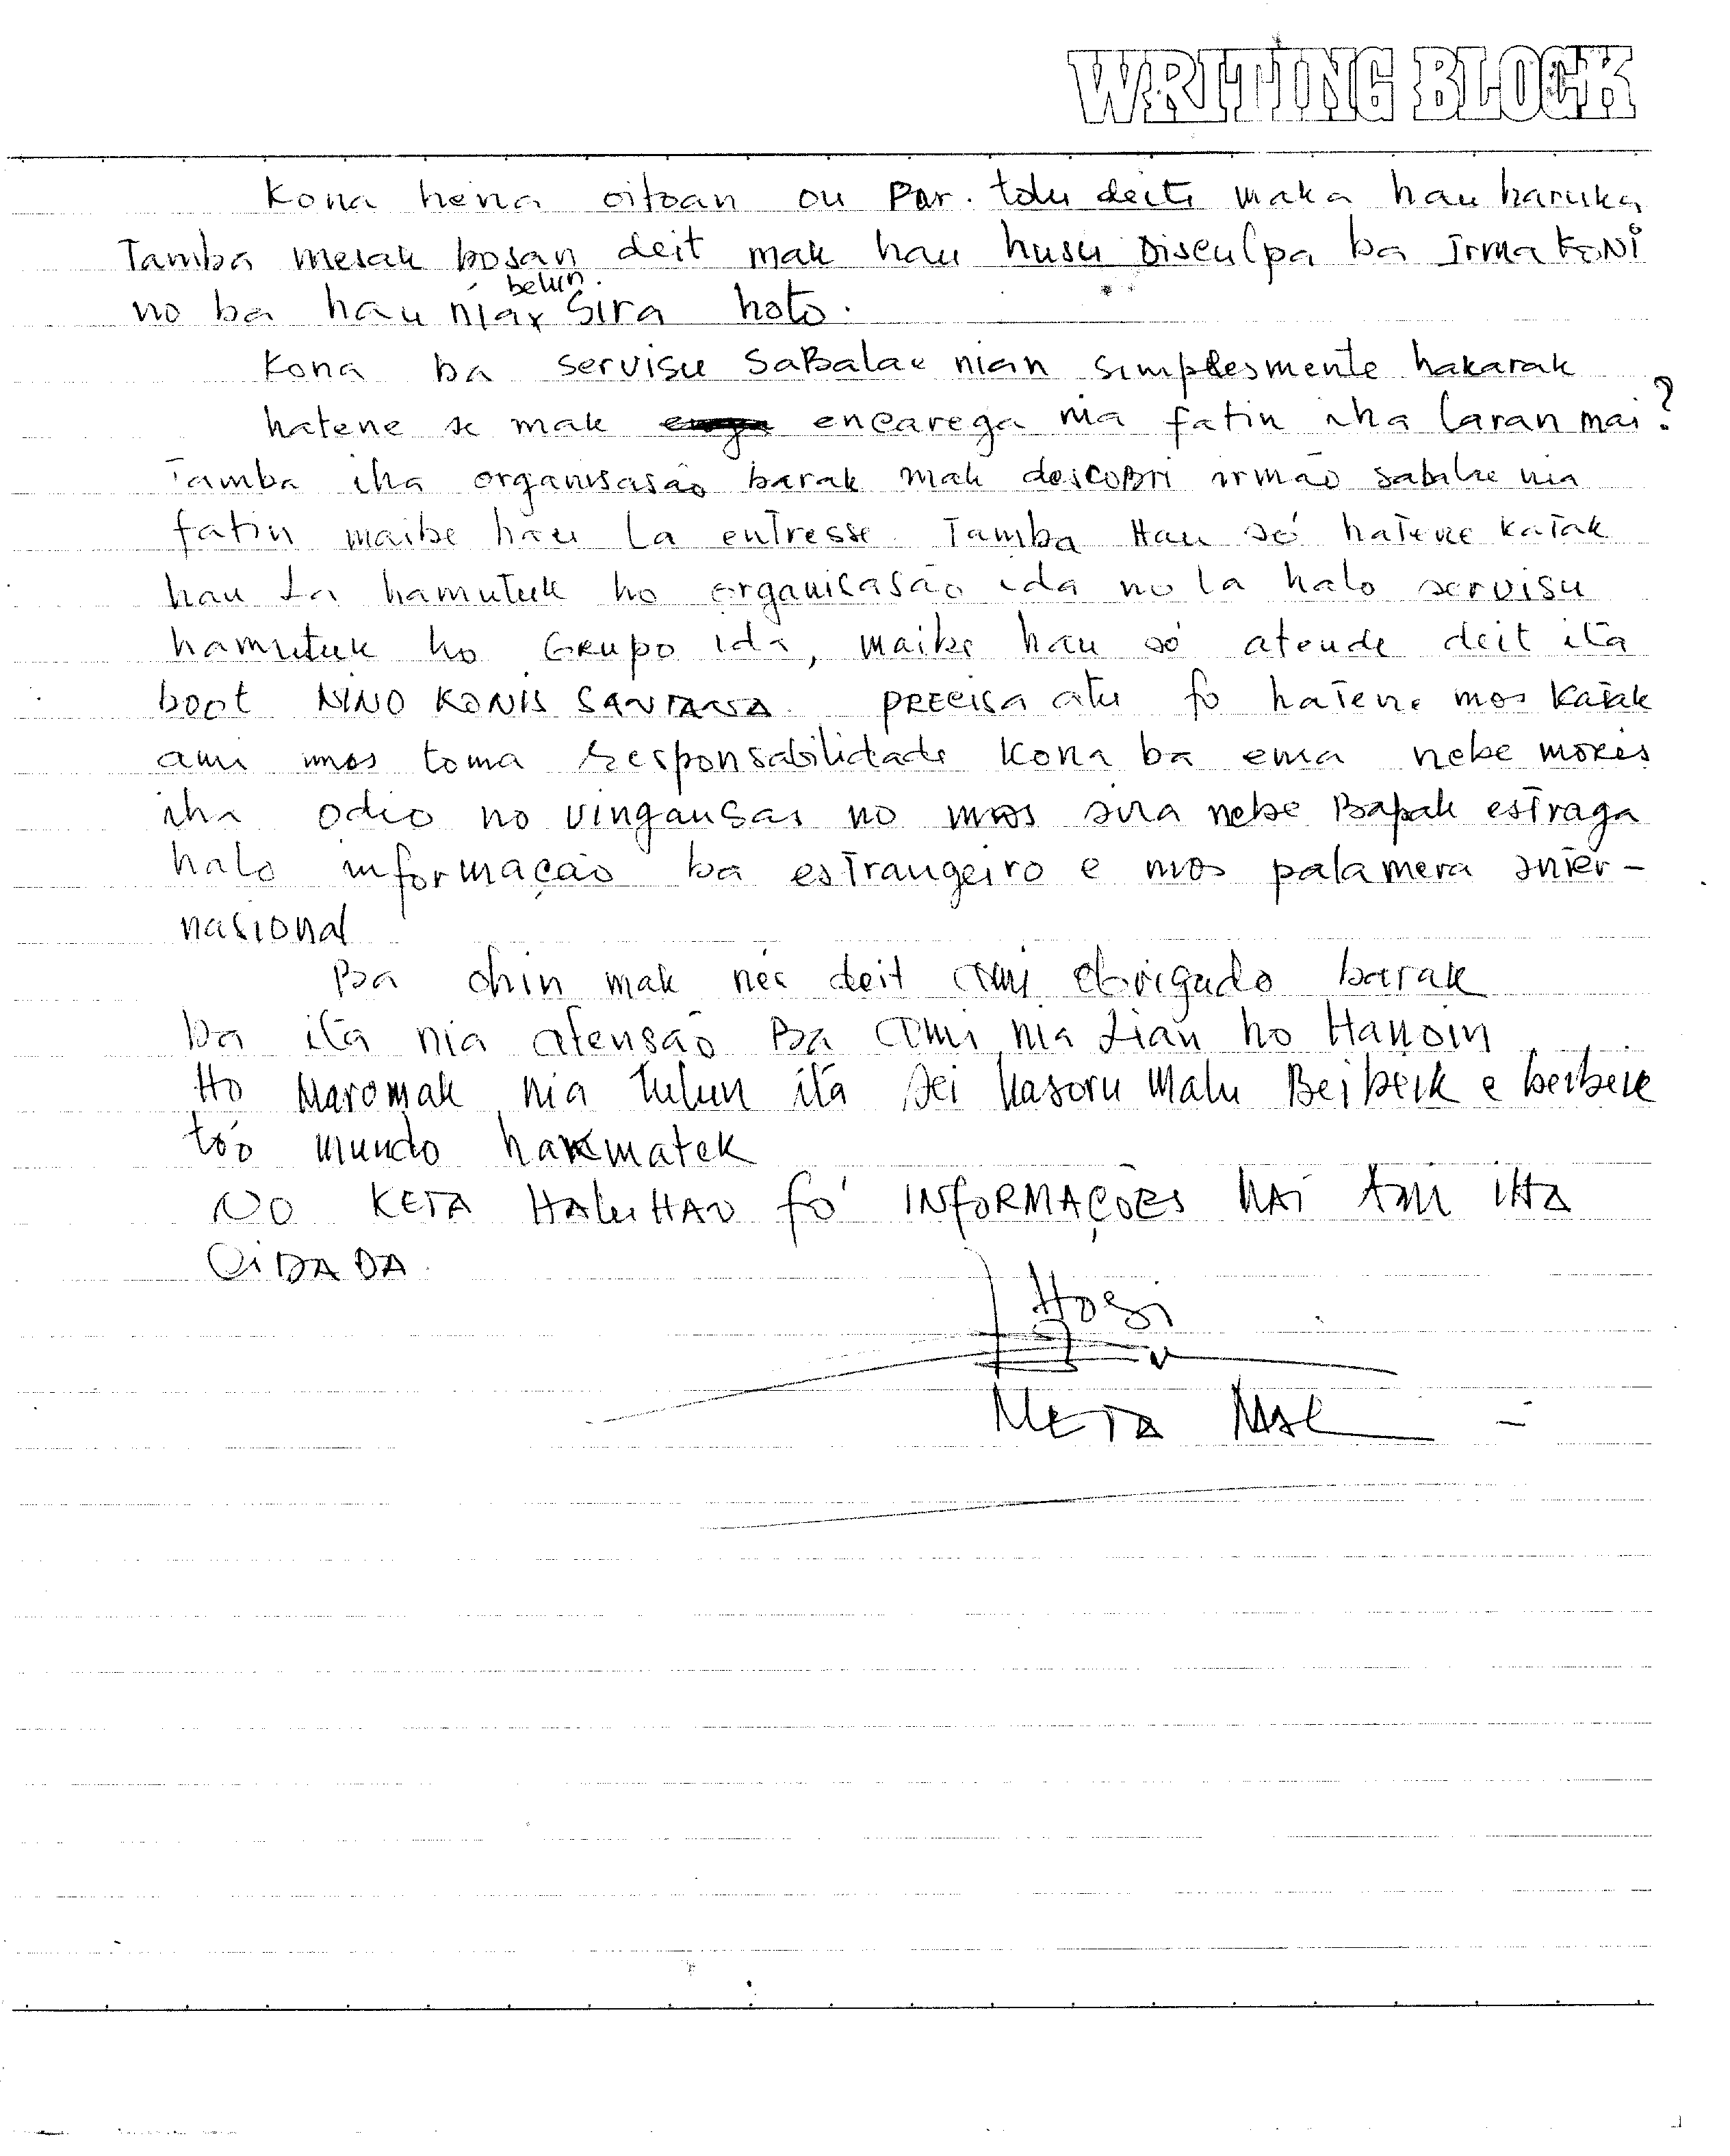 WRITING BLOCK
Kona hena oitoan ou Par. tolu deit maka hau haruka
Tamba mesak bosan deit mak hau husu Disculpa ba Irma KONI
no ba hau nia belun sira hoto.
Kona ba servisu SaBalae nian simplesmente hakarak
hatene se mak encarega nia fatin iha laran mai?
Tamba iha organisasão barak mak descobri irmão sabalae nia
fatin maibe hau la entresse. Tamba Hau só hatene katak
hau La hamutuk ho organisasão ida no la halo servisu
hamutuk ho Grupo ida, maibe hau só atende deit ita
boot NINO KONIS SANTANA. PRECisa atu fo hatene mos katak
ami mos toma responsabilidade kona ba ema nebe mores
iha odio no vingansas no mos sira nebe Bapak estraga
halo informação ba estrangeiro e mos palamera inter-
nasional
Ba ohin mak neé deit ami obrigado barak
ba ita nia atensão Ba ami nia Lian ho Hanoin
Ho Maromak nia tulun ita sei hasoru malu Beibeik e beibeik
tóo mundo hakmatek
NO KETA HALUHAU fó INfoRMAÇÕES MAI AMI IHA
CiDADA.
Hosi
META MAL -